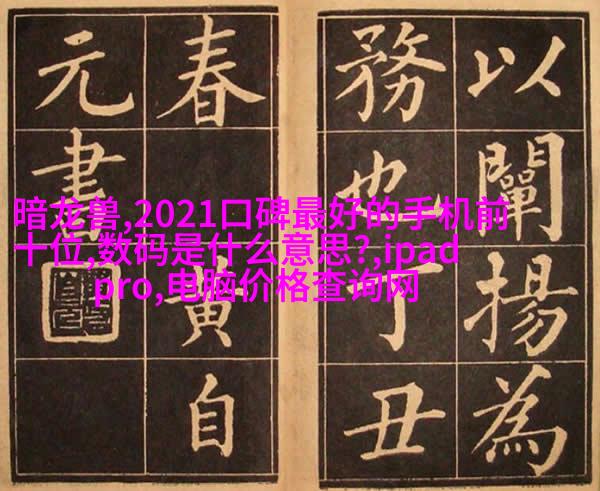 以闡揚為
務也丁丑
春黃自
元書
暗龙兽,2021口碑最好的手机前
十位,数码是什么意思?,ipad
pro,电脑价格查询网